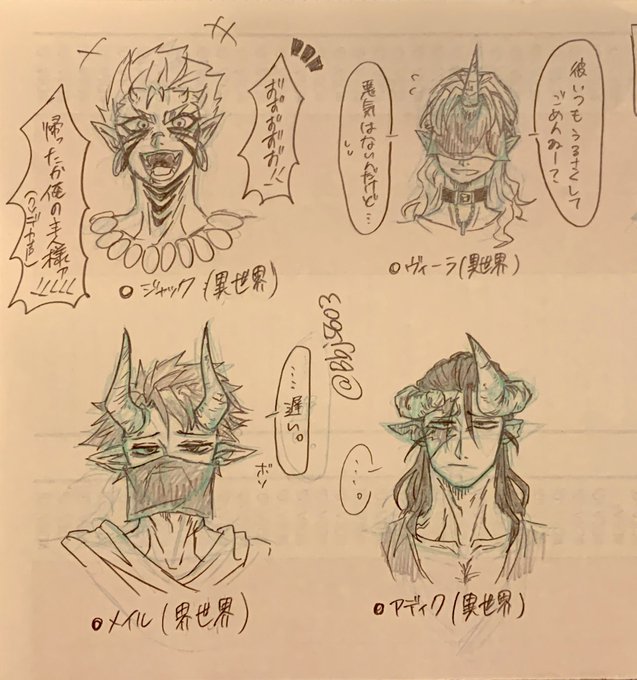 おおおおお!!
帰ったか俺の主様ァァァァ!!!
(クソデカ声)
ジャック (異世界)
彼いつもうるさくして
ごめんねー?
悪気はないんだけど…
ヴィーラ(異世界)
……遅い。
ボソ
メイル (異世界)
……。
アディク (異世界)